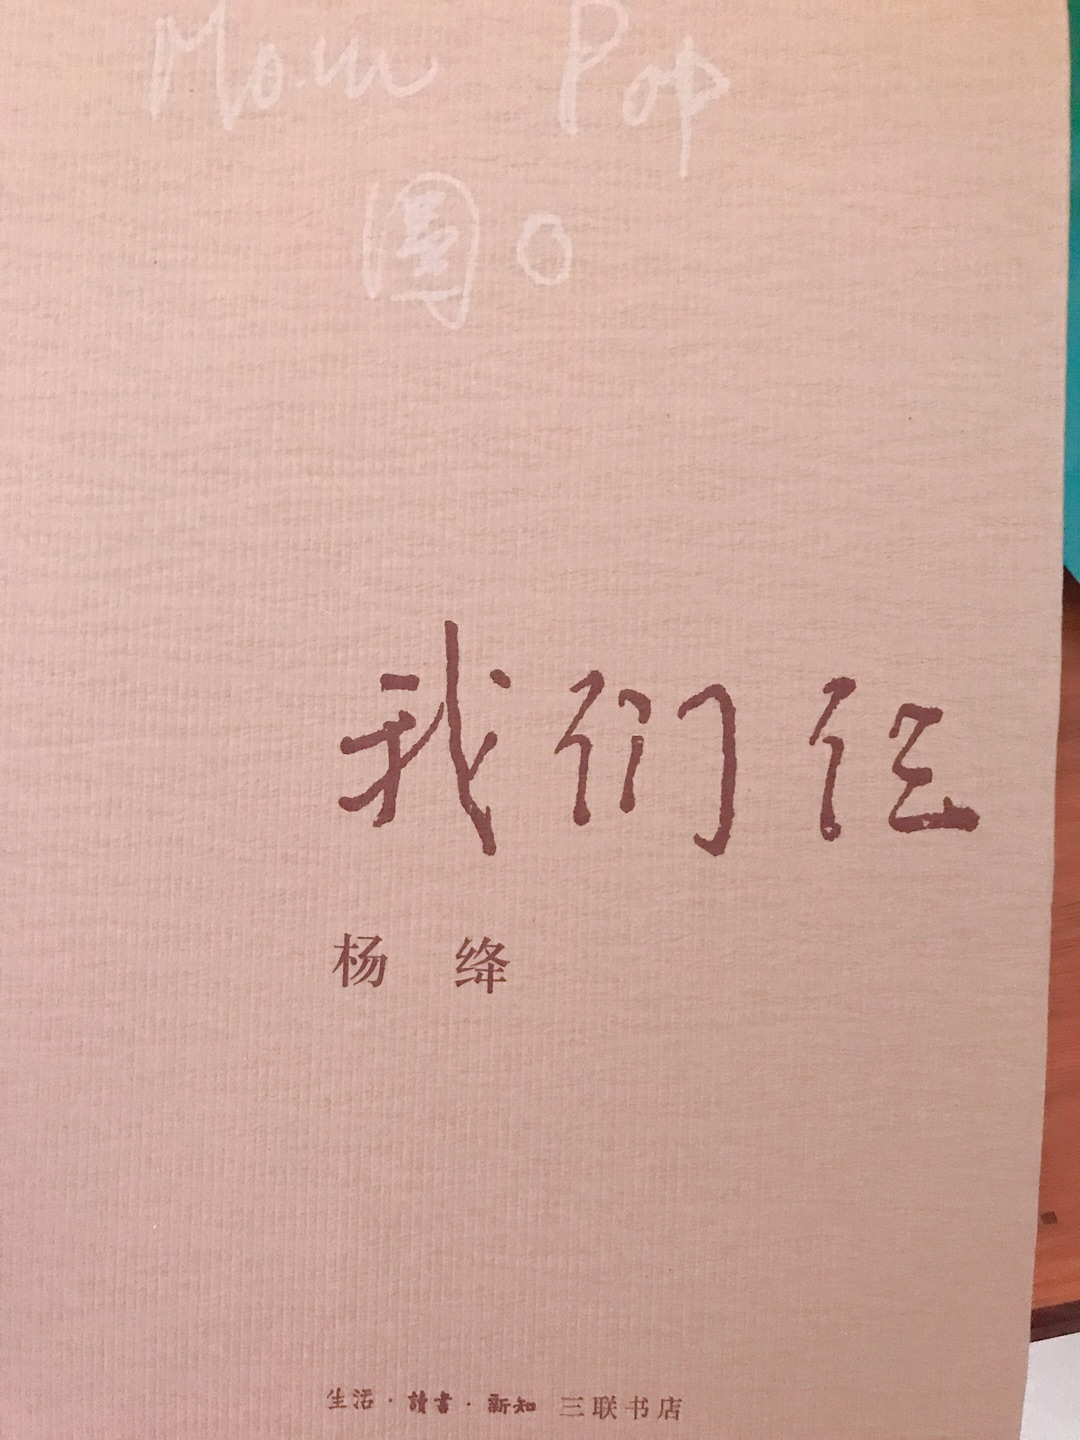 Mom Pop
圓○
我们仨
杨 绛
生活·讀書·新知 三联书店